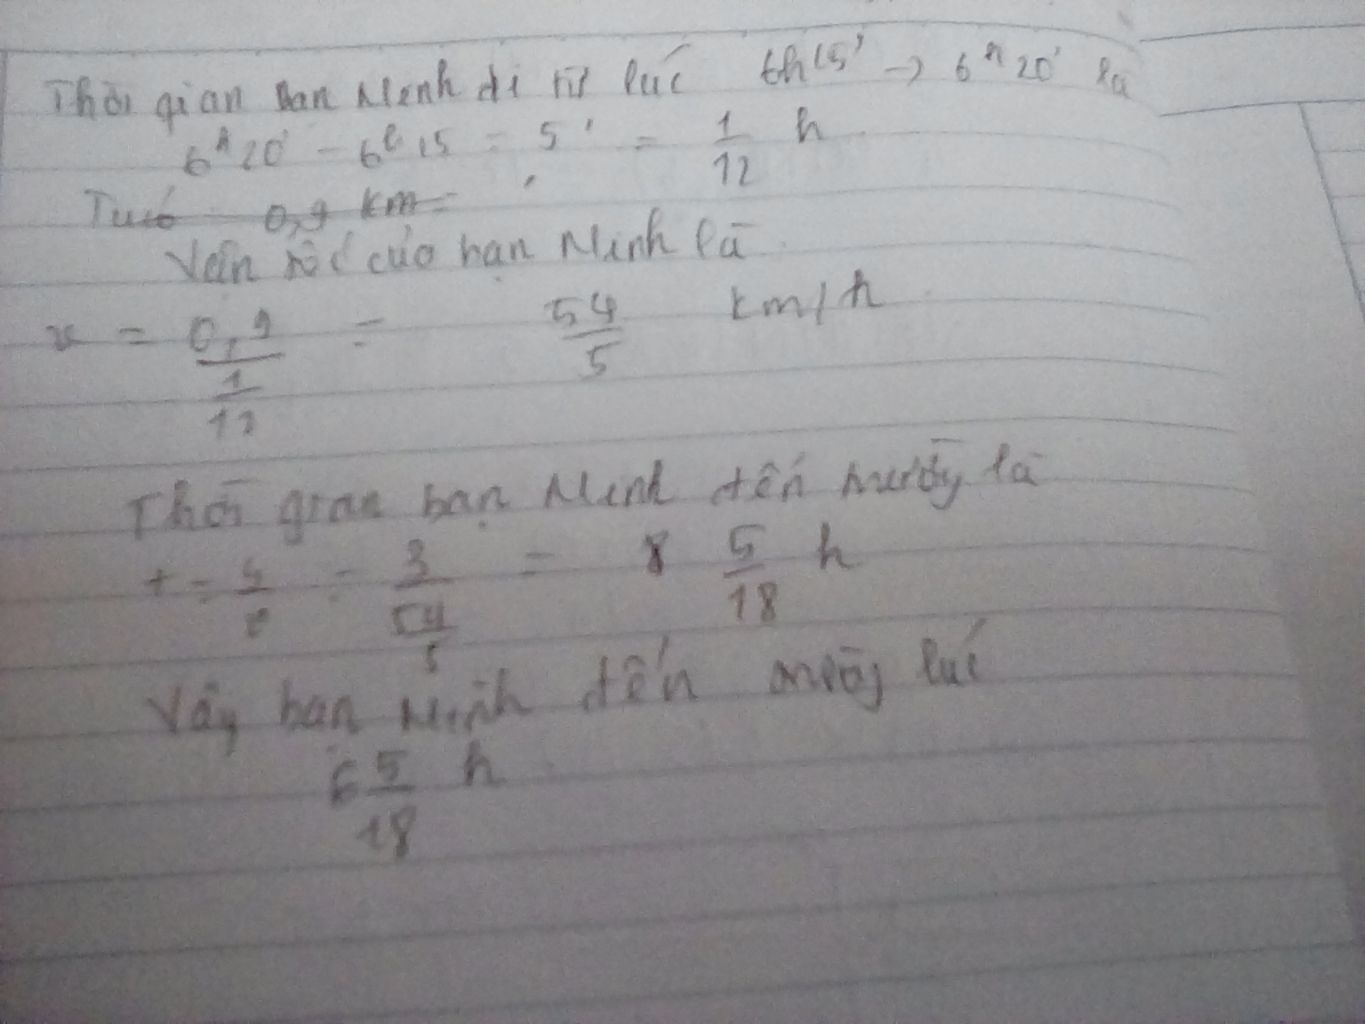 Thời gian bạn Minh đi từ lúc 6h15' -> 6h20' là
6h20' - 6h15 = 5' = 1/12 h
0,9 km =
Vận tốc của bạn Minh là
v = 0,9 / (1/12) = 54/5 km/h
Thời gian bạn Minh đến trường là
t = s/v = 3 / (54/5) = 5/18 h
Vậy bạn Minh đến trường lúc
6 5/18 h